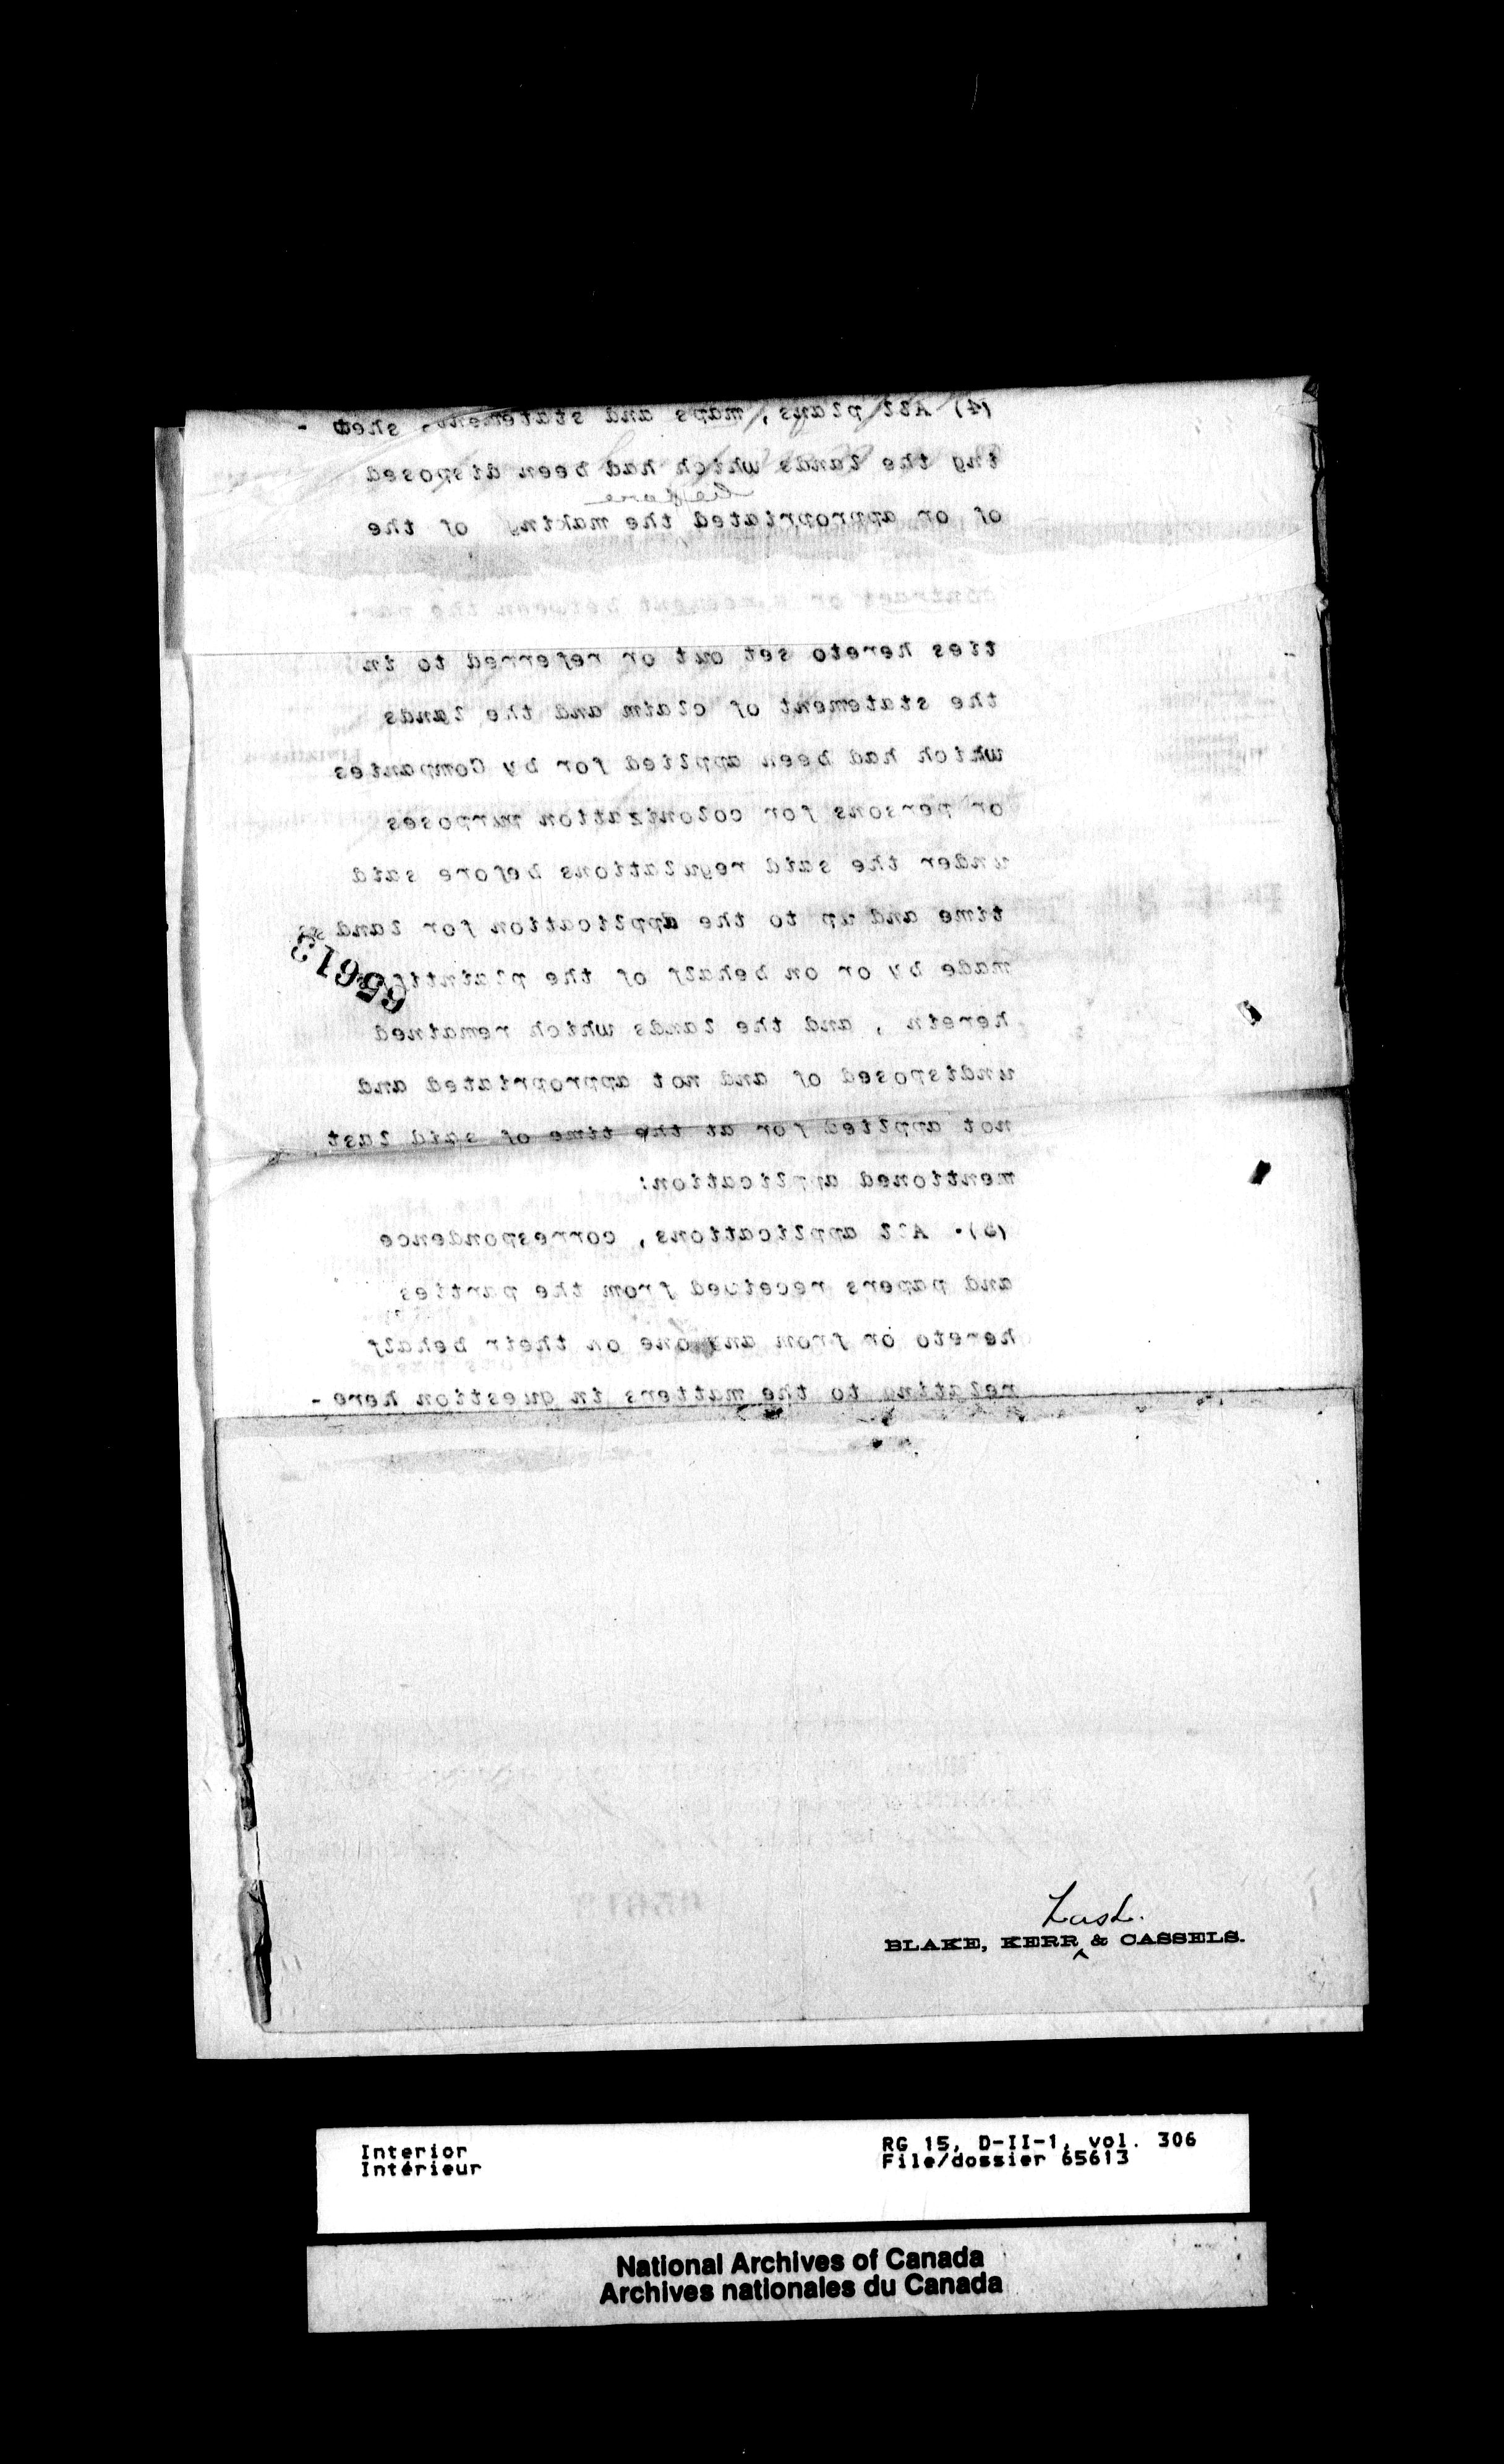 (4) All plans, maps and statement, shew -
ing the lands which had been disposed
before
of or appropriated the making of the
contract or agreement between the par-
ties hereto set out or referred to in
the statement of claim and the lands
which had been applied for by Companies
or persons for colonization purposes
under the said regulations before said
time and up to the application for land s
made by or on behalf of the plaintiffs
65613
herein , and the lands which remained
undisposed of and not appropriated and
not applied for at the time of said last
mentioned application:
(5). All applications, correspondence
and papers received from the parties
hereto or from anyone on their behalf
relating to the matters in question here -
65613
Lash.
BLAKE, KERR ^ & CASSELS.
Interior
Intérieur
RG 15, D-II-1, vol. 306
File/dossier 65613
National Archives of Canada
Archives nationales du Canada